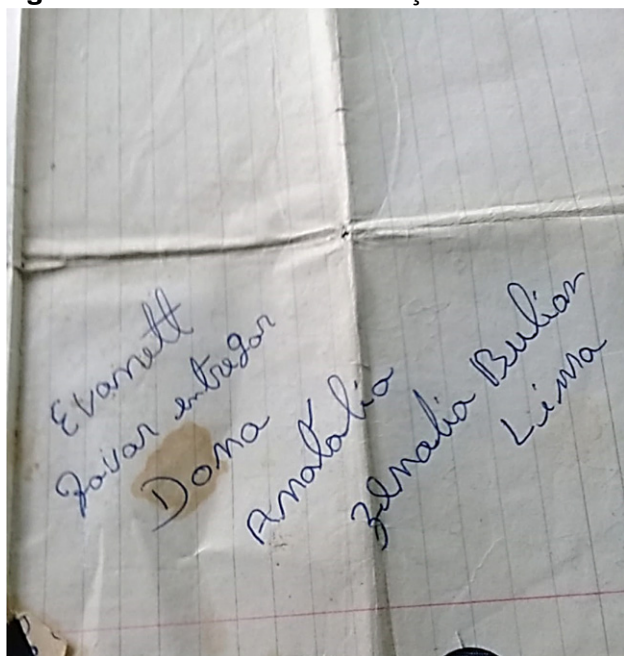 Evanett
Favar entregar
Dona
Anatalia
Zelnalia Bulian
Lima